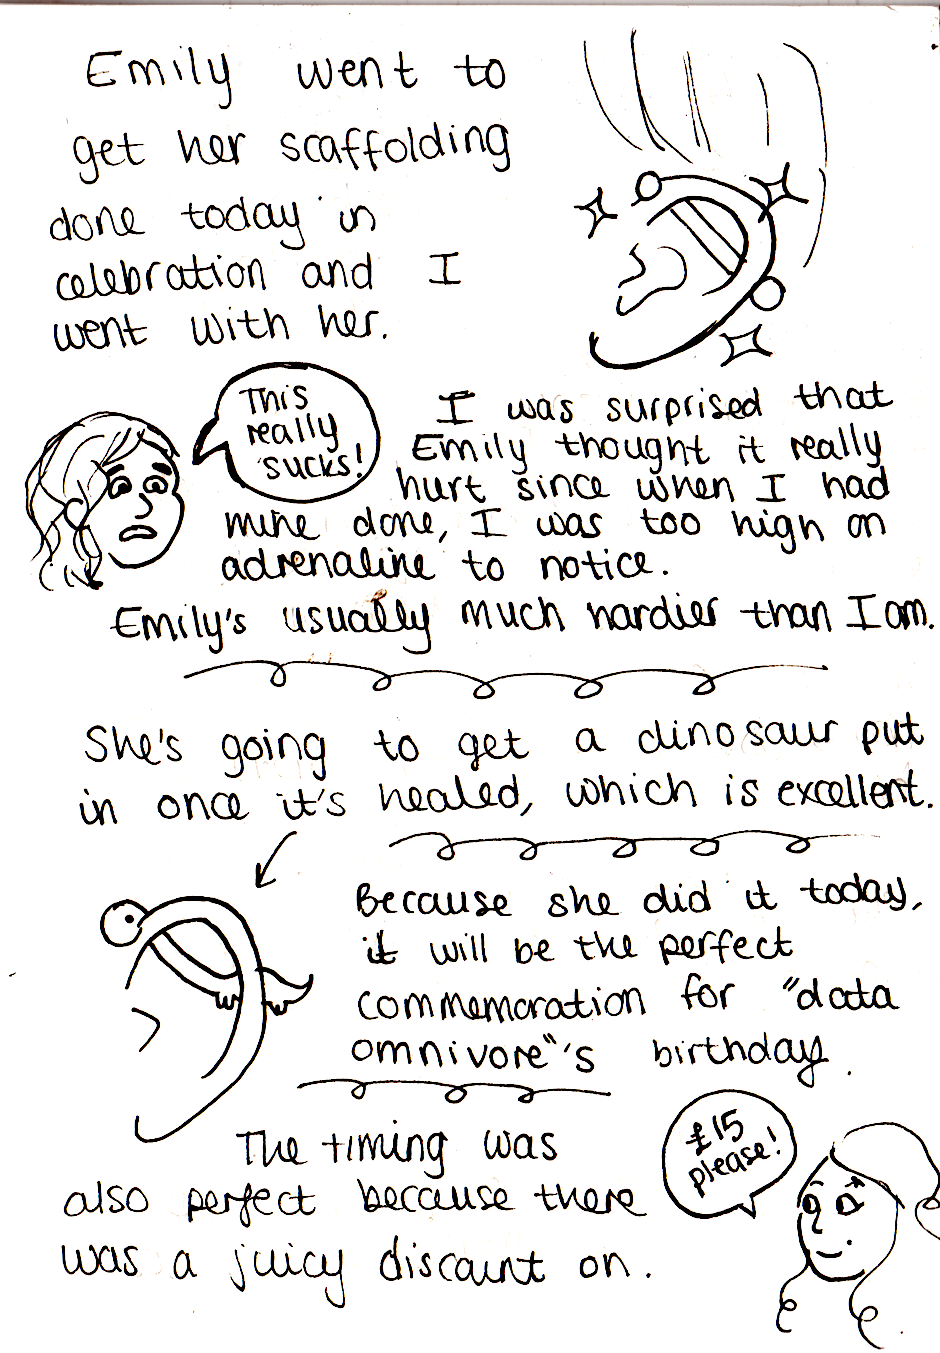 Emily went to
get her scaffolding
done today in
celebration and I
went with her.
This
really
sucks!
I was surprised that
Emily thought it really
hurt since when I had
mine done, I was too high on
adrenaline to notice.
Emily's usually much hardier than I am.
She's going to get a dinosaur put
in once it's healed, which is excellent.
Because she did it today,
it will be the perfect
commemoration for "data
omnivore"'s birthday.
The timing was
also perfect because there
was a juicy discount on.
£15
please!